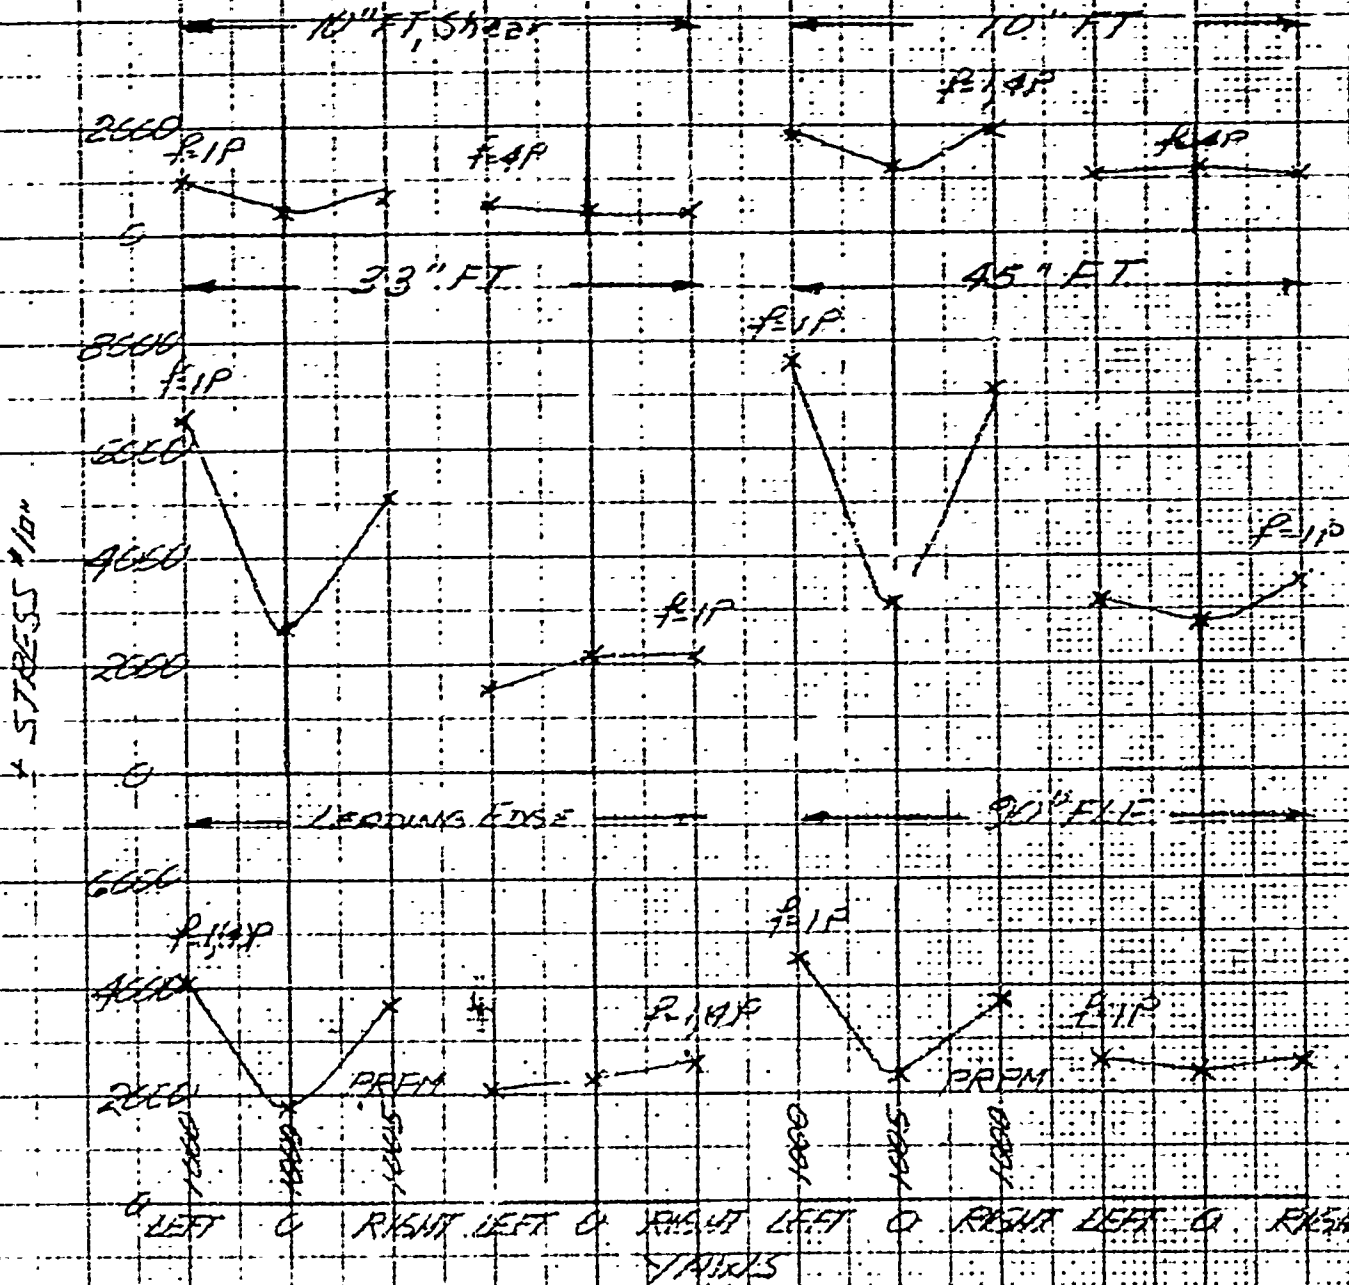 10" FT, Shear
10" FT
f=1,4P
2000
f=1P
f=4P
f=4P
0
33" FT
45" FT
f=1P
8000
f=1P
6000
f=1P
4000
f=1P
2000
0
± STRESS #/□"
LEADING EDGE
90" FLE
6000
f=1P
f=1,4P
4000
f=1,4P
f=1P
2000
PRPM
PRPM
1000
1005
1005
1000
1005
1000
0
LEFT 0 RIGHT LEFT 0 RIGHT LEFT 0 RIGHT LEFT 0
YAWS